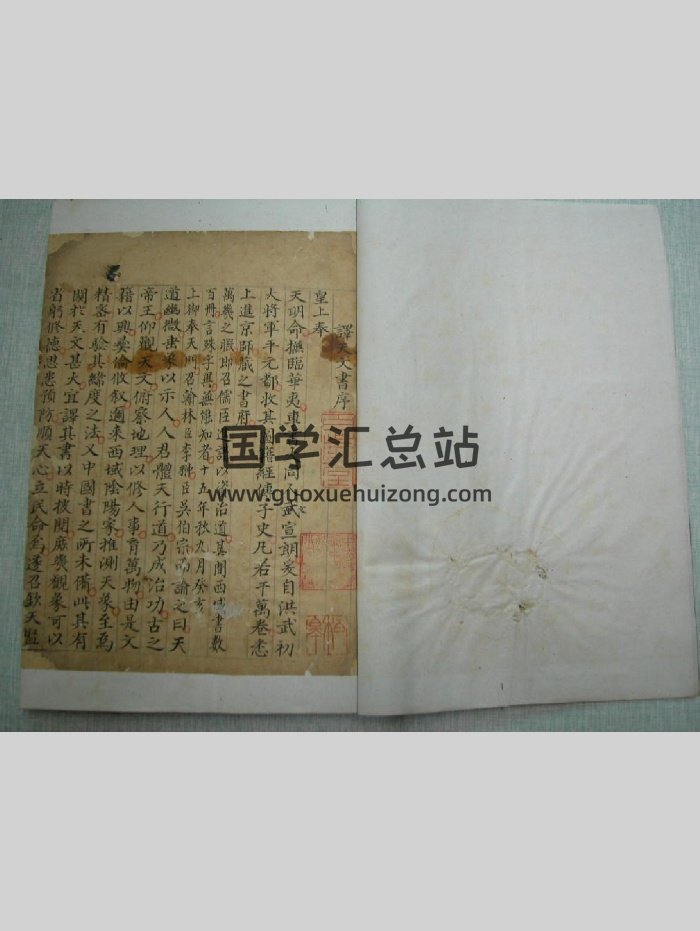 譯天文書序
皇上奉
天明命撫臨華夷車書同文武宣朗爰自洪武初
大將軍平元都收其圖籍經傳子史凡若干萬卷悉
上進京師藏之書府
萬幾之暇即召儒臣進講以資治道其間西域書數
百冊言殊字異無能知者十五年秋九月癸亥
上御奉天門召翰林臣李翀臣吳伯宗而諭之曰天
道幽微垂象以示人人君體天行道乃成治功古之
帝王仰觀天文俯察地理以修人事育萬物由是文
籍以興彝倫攸敘邇來西域陰陽家推測天象至為
精密有驗其緯度之法又中國書之所未備此其有
關於天文甚大宜譯其書以時披閱庶幾觀象可以
省躬修德思患預防順天心立民命焉遂召欽天監
国学汇总站
www.guoxuehuizong.com